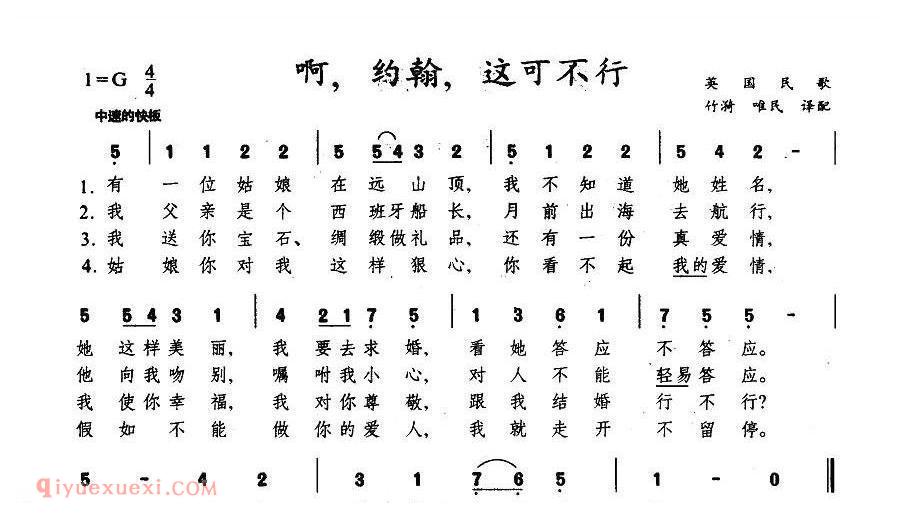 啊，约翰，这可不行
1=G 4/4
英国民歌
中速的快板
竹漪 唯民 译配
5 | 1 1 2 2 | 5 5 4 3 2 | 5 1 2 1 | 5 4 2 - |
1. 有 一位姑娘 在远山顶，我不知道 她姓名，
2. 我 父亲是个 西班牙船长，月前出海 去航行，
3. 我 送你宝石、绸缎做礼品，还有一份 真爱情，
4. 姑 娘你对我 这样狠心，你看不起 我的爱情，
5 5 4 3 1 | 4 2 1 7 5 | 1 3 6 1 | 7 5 5 - |
她这样美丽，我要去求婚，看她答应 不答应。
他向我吻别，嘱咐我小心，对人不能 轻易答应。
我使你幸福，我对你尊敬，跟我结婚 行不行？
假如不能 做你的爱人，我就走开 不留停。
5 - 4 2 | 3 1 7 6 5 | 1 - 1 0 ‖
qiyuexuexi.com